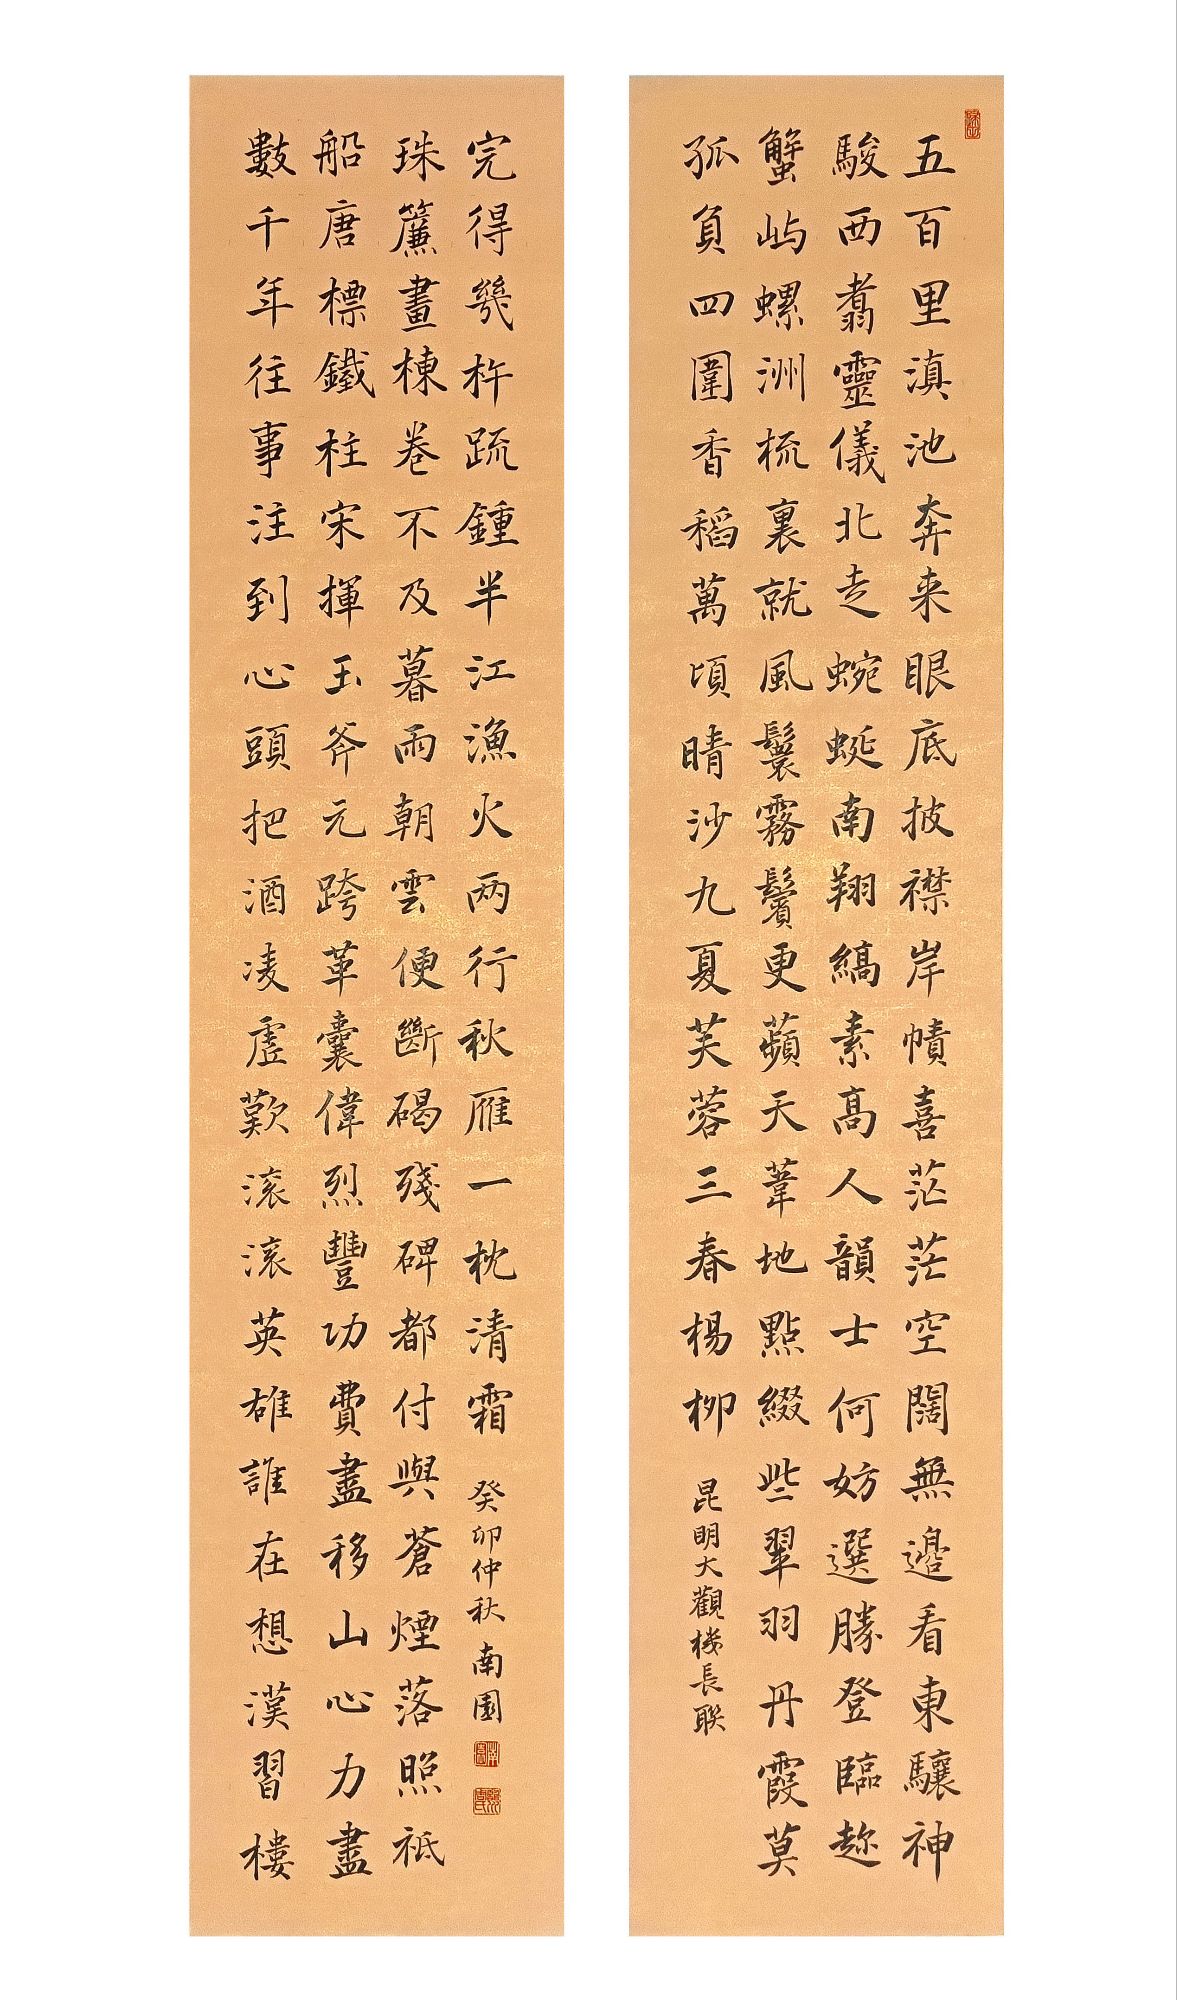 五百里滇池奔来眼底披襟岸幘喜茫茫空闊無邊看東驤神
駿西翥靈儀北走蜿蜒南翔縞素高人韻士何妨選勝登臨趂
蟹屿螺洲梳裏就風鬟霧鬢更蘋天葦地點綴些翠羽丹霞莫
孤負四圍香稻萬頃晴沙九夏芙蓉三春楊柳
昆明大觀樓長联
數千年往事注到心頭把酒凌虛歎滚滚英雄誰在想漢習樓
船唐標鐵柱宋揮玉斧元跨革囊偉烈豐功費盡移山心力盡
珠簾畫棟卷不及暮雨朝雲便斷碣殘碑都付與蒼煙落照祗
完得幾杵疏鍾半江漁火两行秋雁一枕清霜
癸卯仲秋南園